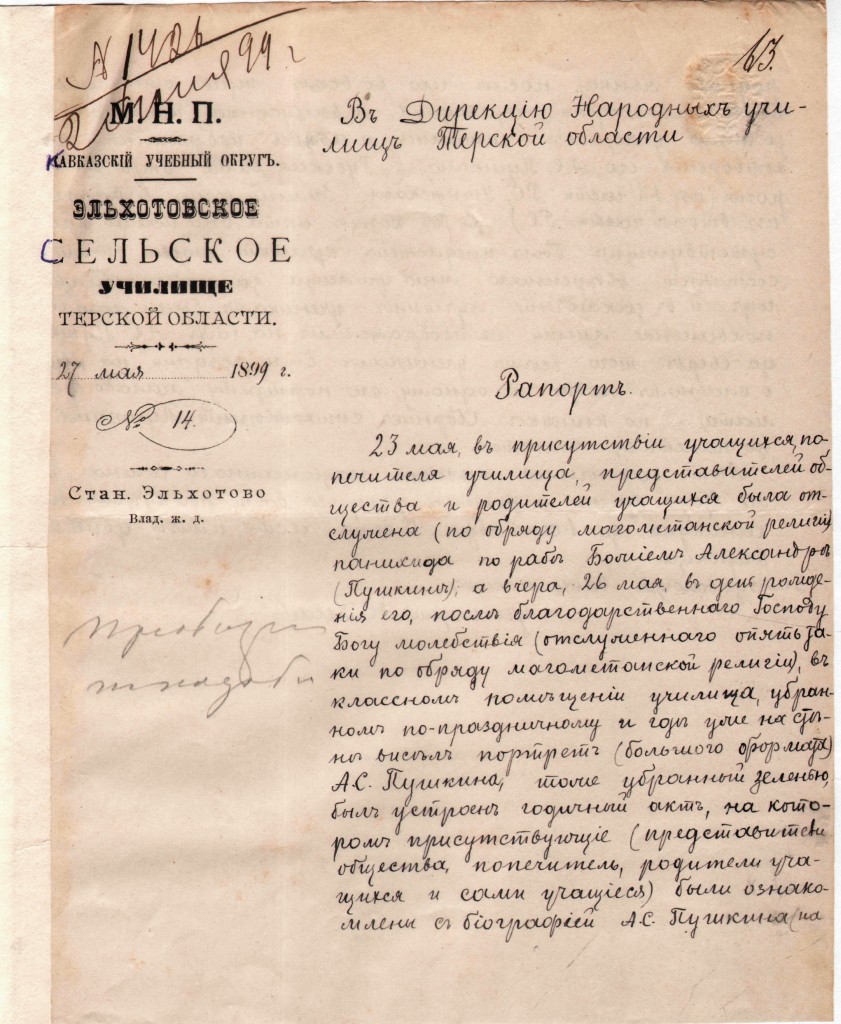 № 1426
2 июня 99 г
63.
М. Н. П.
КАВКАЗСКІЙ УЧЕБНЫЙ ОКРУГЪ.
ЭЛЬХОТОВСКОЕ
СЕЛЬСКОЕ
УЧИЛИЩЕ
ТЕРСКОЙ ОБЛАСТИ.
27 мая 1899 г.
№ 14.
Стан. Эльхотово
Влад. ж. д.
Въ Дирекцію Народныхъ учи-
лищъ Терской области
Рапортъ.
23 мая, въ присутствіи учащихся, по-
печителя училища, представителей об-
щества и родителей учащихся была от-
служена (по обряду магометанской религіи)
панихида по рабѣ Божіемъ Александрѣ
(Пушкинѣ), а вчера, 26 мая, въ день рожде-
нія его, послѣ благодарственнаго Господу
Богу молебствія (отслуженнаго опять та-
ки по обряду магометанской религіи), въ
классномъ помѣщеніи училища, убран-
номъ по-праздничному и гдѣ уже на стѣ-
нѣ висѣлъ портретъ (большого формата)
А.С. Пушкина, тоже убранный зеленью,
былъ устроенъ годичный актъ, на кото-
ромъ присутствующіе (представители
общества, попечитель, родители уча-
щихся и сами учащіеся) были ознако-
млены съ біографіей А.С. Пушкина (на